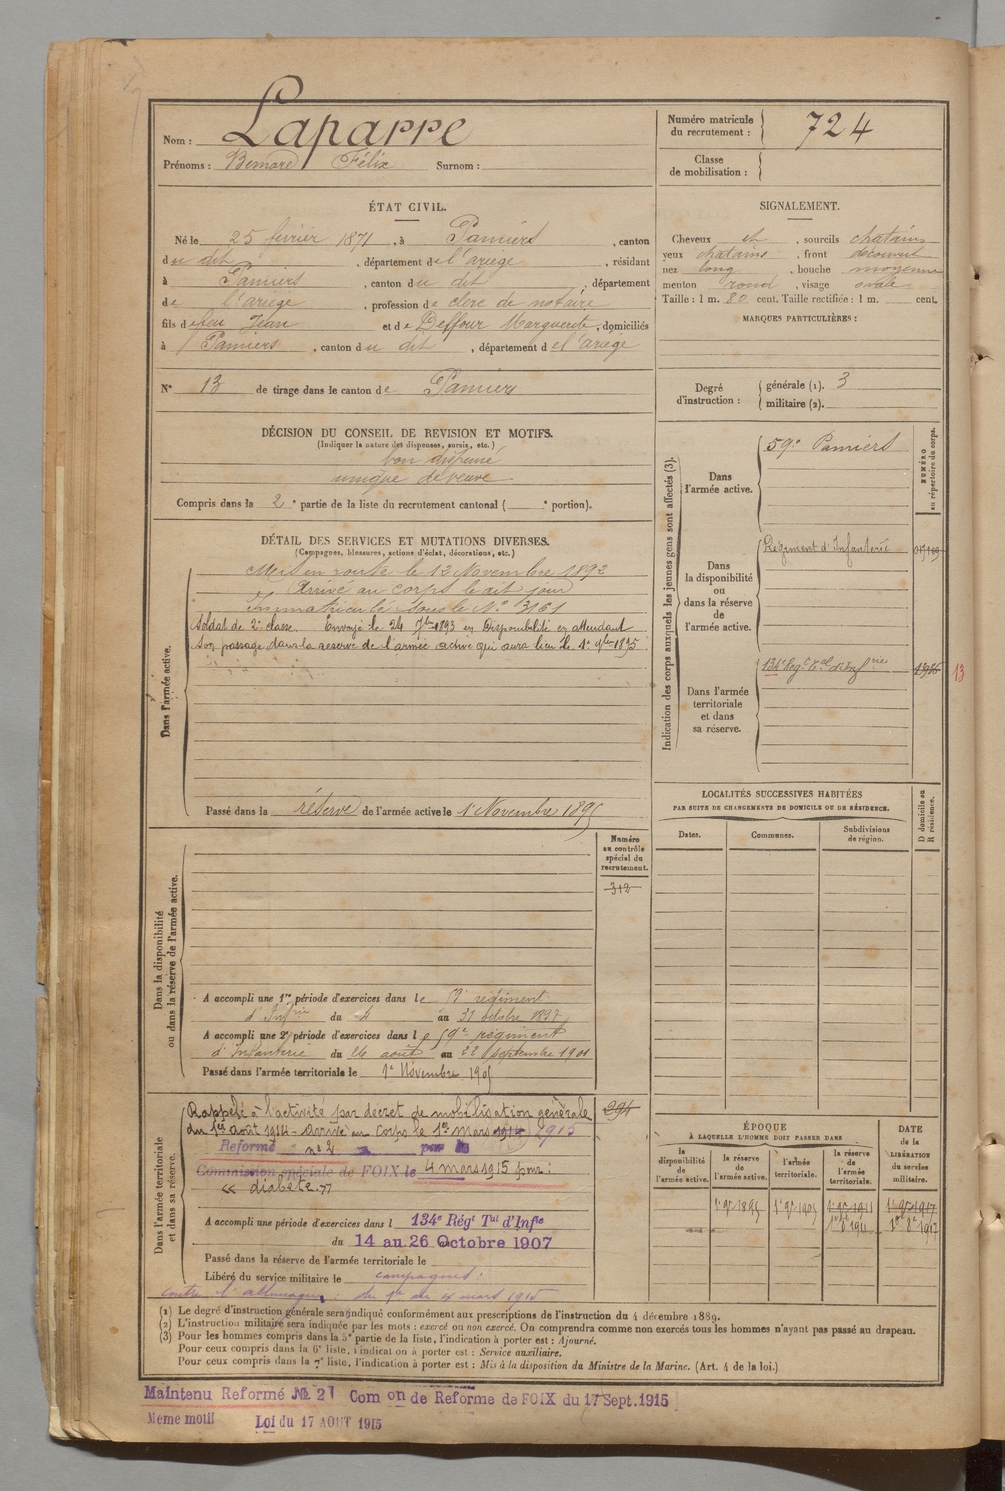 Nom : Laparre
Prénoms : Bernard Félix Surnom :
Numéro matricule du recrutement : 724
Classe de mobilisation :
ÉTAT CIVIL.
Né le 25 février 1871, à Pamiers, canton
du dit, département de l'ariège, résidant
à Pamiers, canton du dit, département
de l'ariège, profession de clerc de notaire
fils de feu Jean et de Deffour Marguerite, domiciliés
à Pamiers, canton du dit, département de l'ariège
N° 13 de tirage dans le canton de Pamiers
SIGNALEMENT.
Cheveux et, sourcils chatains
yeux chatains, front découvert
nez long, bouche moyenne
menton rond, visage ovale
Taille : 1 m. 80 cent. Taille rectifiée : 1 m. cent.
MARQUES PARTICULIÈRES :
Degré d'instruction : générale (1). 3
militaire (2).
DÉCISION DU CONSEIL DE REVISION ET MOTIFS.
(Indiquer la nature des dispenses, sursis, etc.)
bon dispensé
unique de veuve
Compris dans la 2e partie de la liste du recrutement cantonal ( e portion).
DÉTAIL DES SERVICES ET MUTATIONS DIVERSES.
(Campagnes, blessures, actions d'éclat, décorations, etc.)
Dans l'armée active.
Mis en route le 12 Novembre 1892
Arrivé au corps le dit jour
Immatriculé sous le N° 3161
Soldat de 2e classe. Envoyé le 24 7bre 1893 en Disponibilité en attendant
son passage dans la réserve de l'armée active qui aura lieu le 1er 9bre 1895
Passé dans la réserve de l'armée active le 1er Novembre 1895
Indication des corps auxquels les jeunes gens sont affectés (3).
NUMÉRO au répertoire du corps.
Dans l'armée active.
59e Pamiers
Dans la disponibilité ou dans la réserve de l'armée active.
Régiment d'Infanterie
Dans l'armée territoriale et dans sa réserve.
134e Regt Tal d'Infrie
13
LOCALITÉS SUCCESSIVES HABITÉES
PAR SUITE DE CHANGEMENTS DE DOMICILE OU DE RÉSIDENCE.
Dates. Communes. Subdivisions de région.
D domicile ou R résidence.
Dans la disponibilité ou dans la réserve de l'armée active.
Numéro au contrôle spécial du recrutement.
312
A accompli une 1re période d'exercices dans le régiment
d'Infrie du 4 au 31 octobre
A accompli une 2e période d'exercices dans le 59e régiment
d'Infanterie du 26 août au 22 septembre 1901
Passé dans l'armée territoriale le 1er Novembre 1905
Dans l'armée territoriale et dans sa réserve.
294
Rappelé à l'activité par décret de mobilisation générale
du 1er août 1914 - arrivé au Corps le 1er mars 1914 1915
Réformé n° 2 par la
Commission spéciale de FOIX le 4 mars 1915 pour :
« diabète. »
A accompli une période d'exercices dans l 134e Régt Tal d'Infie
du 14 au 26 Octobre 1907
Passé dans la réserve de l'armée territoriale le
Libéré du service militaire le campagnes :
contre l'allemagne : du 1er au 4 mars 1915
ÉPOQUE
À LAQUELLE L'HOMME DOIT PASSER DANS
la disponibilité de l'armée active. la réserve de l'armée active. l'armée territoriale. la réserve de l'armée territoriale.
DATE de la LIBÉRATION du service militaire.
1er 9bre 1895 1er 9bre 1905 1er 9bre 1911 1er 9bre 1917
1er 8bre 1911 1er 8bre 1917
(1) Le degré d'instruction générale sera indiqué conformément aux prescriptions de l'instruction du 4 décembre 1889.
(2) L'instruction militaire sera indiquée par les mots : exercé ou non exercé. On comprendra comme non exercés tous les hommes n'ayant pas passé au drapeau.
(3) Pour les hommes compris dans la 5e partie de la liste, l'indication à porter est : Ajourné.
Pour ceux compris dans la 6e liste, l'indication à porter est : Service auxiliaire.
Pour ceux compris dans la 7e liste, l'indication à porter est : Mis à la disposition du Ministre de la Marine. (Art. 4 de la loi.)
Maintenu Reformé № 2 Com on de Reforme de FOIX du 17 Sept. 1915
Meme motif Loi du 17 AOUT 1915